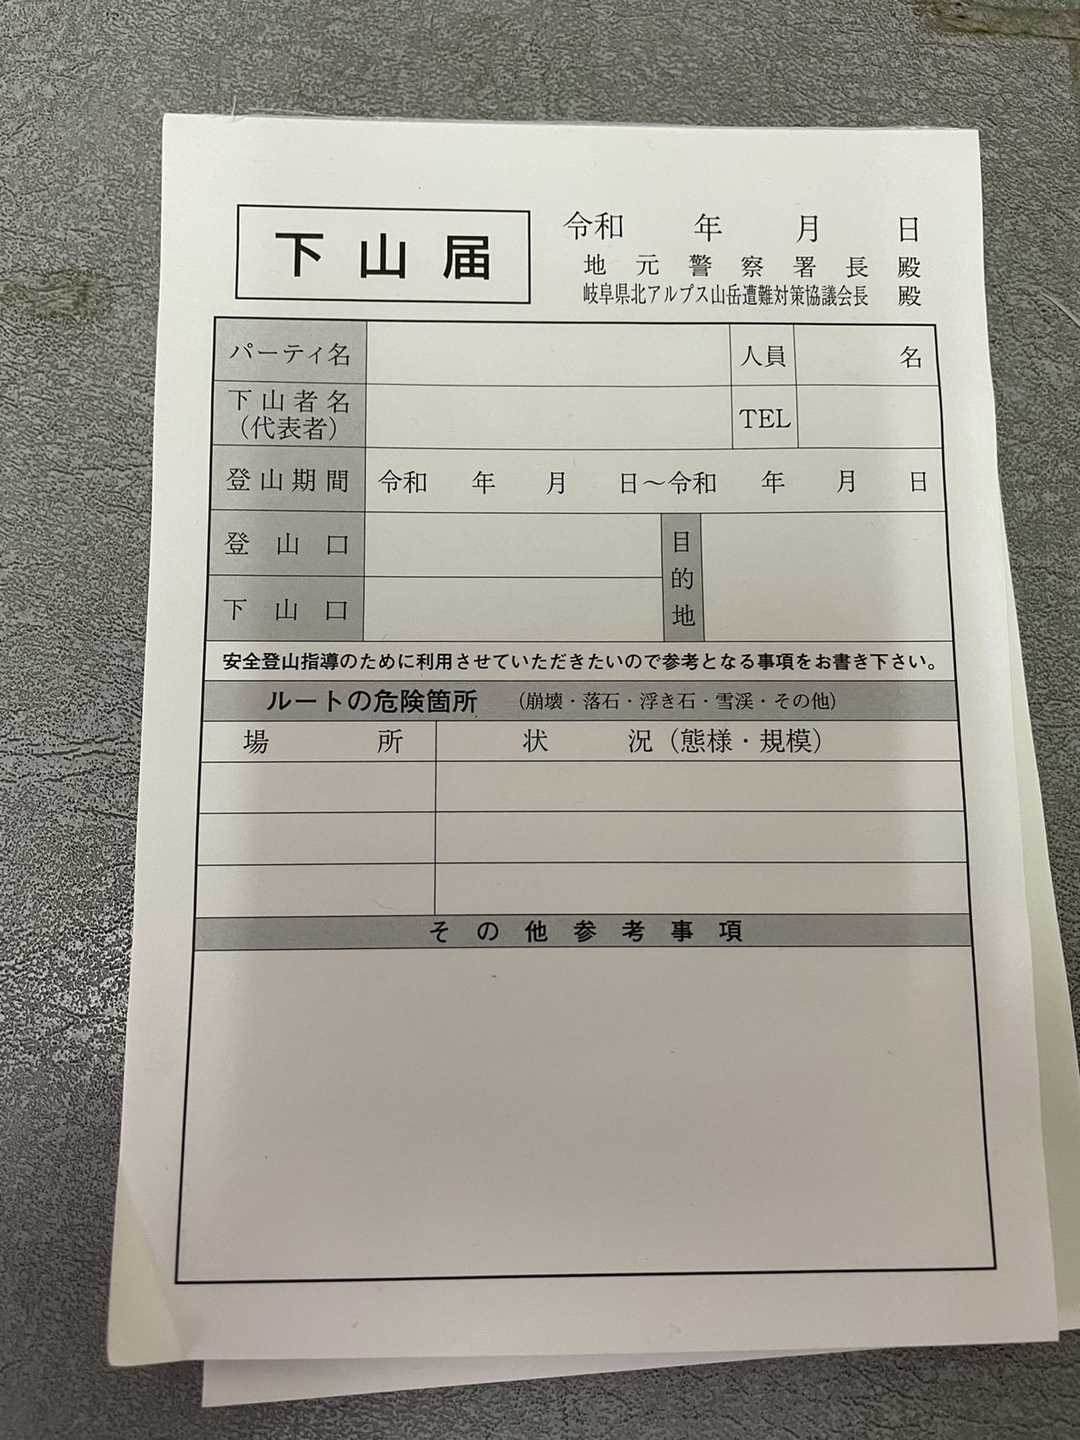 下山届
令和 年 月 日
地元警察署長 殿
岐阜県北アルプス山岳遭難対策協議会長 殿
パーティ名 人員 名
下山者名 TEL
(代表者)
登山期間 令和 年 月 日～令和 年 月 日
登山口
下山口
目的地
安全登山指導のために利用させていただきたいので参考となる事項をお書き下さい。
ルートの危険箇所 (崩壊・落石・浮き石・雪渓・その他)
場所 状況(態様・規模)
その他参考事項